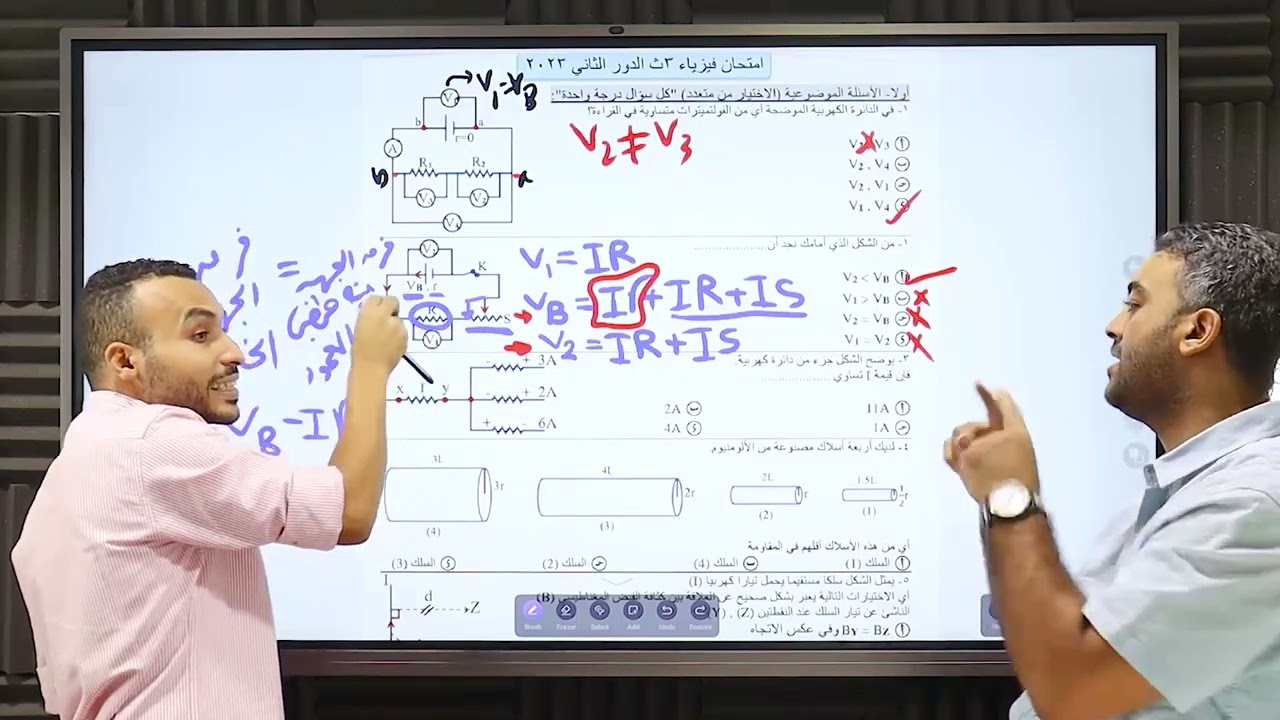 امتحان فيزياء ٣ث الدور الثاني ٢٠٢٣
أولا- الأسئلة الموضوعية (الاختيار من متعدد) "كل سؤال درجة واحدة":
١- في الدائرة الكهربية الموضحة أي من الفولتميترات متساوية في القراءة؟
V₁=V_B
V
b
a
r=0
A
R₁
R₂
b
V₃
V₂
V₄
V₂ ≠ V₃
V₃ أ
V₂ , V₄ ب
V₂ , V₁ ج
V₁ , V₄ د
من الشكل الذي أمامك نجد أن ..............
V₂ < V_B أ
V₁ > V_B ب
V₂ = V_B ج
V₁ = V₂ د
V_B , r
K
R
S
V₁ = IR
V_B = Ir + IR + IS
V₂ = IR + IS
=
V_B - Ir
٣- يوضح الشكل جزء من دائرة كهربية.
فإن قيمة I تساوي ..............
11A أ
2A ب
1A ج
4A د
x I y
- + 3A
- + 2A
+ - 6A
٤- لديك أربعة أسلاك مصنوعة من الألومنيوم.
3L
4L
2L
1.5L
3r
2r
r
½r
(4)
(3)
(2)
(1)
أي من هذه الأسلاك أقلهم في المقاومة
أ السلك (1)
ب السلك (4)
ج السلك (2)
د السلك (3)
٥- يمثل الشكل سلكا مستقيما يحمل تيارا كهربيا (I)
أي الاختيارات التالية يعبر بشكل صحيح عن العلاقة بين كثافة الفيض المغناطيسي (B)
الناشئ عن تيار السلك عند النقطتين (Z) , (Y)
أ B_Y = B_Z وفي عكس الاتجاه
I
d
Z
Brush
Eraser
Select
Add
Undo